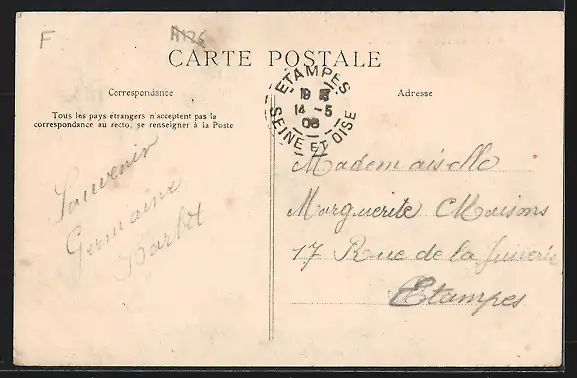 F
CARTE POSTALE
Correspondance
Adresse
Tous les pays étrangers n'acceptent pas la
correspondance au recto, se renseigner à la Poste
ETAMPES
14 -5
08
SEINE ET OISE
Souvenir
Germaine
Mademoiselle
Marguerite Maisons
17 Rue de la Juiverie
Etampes